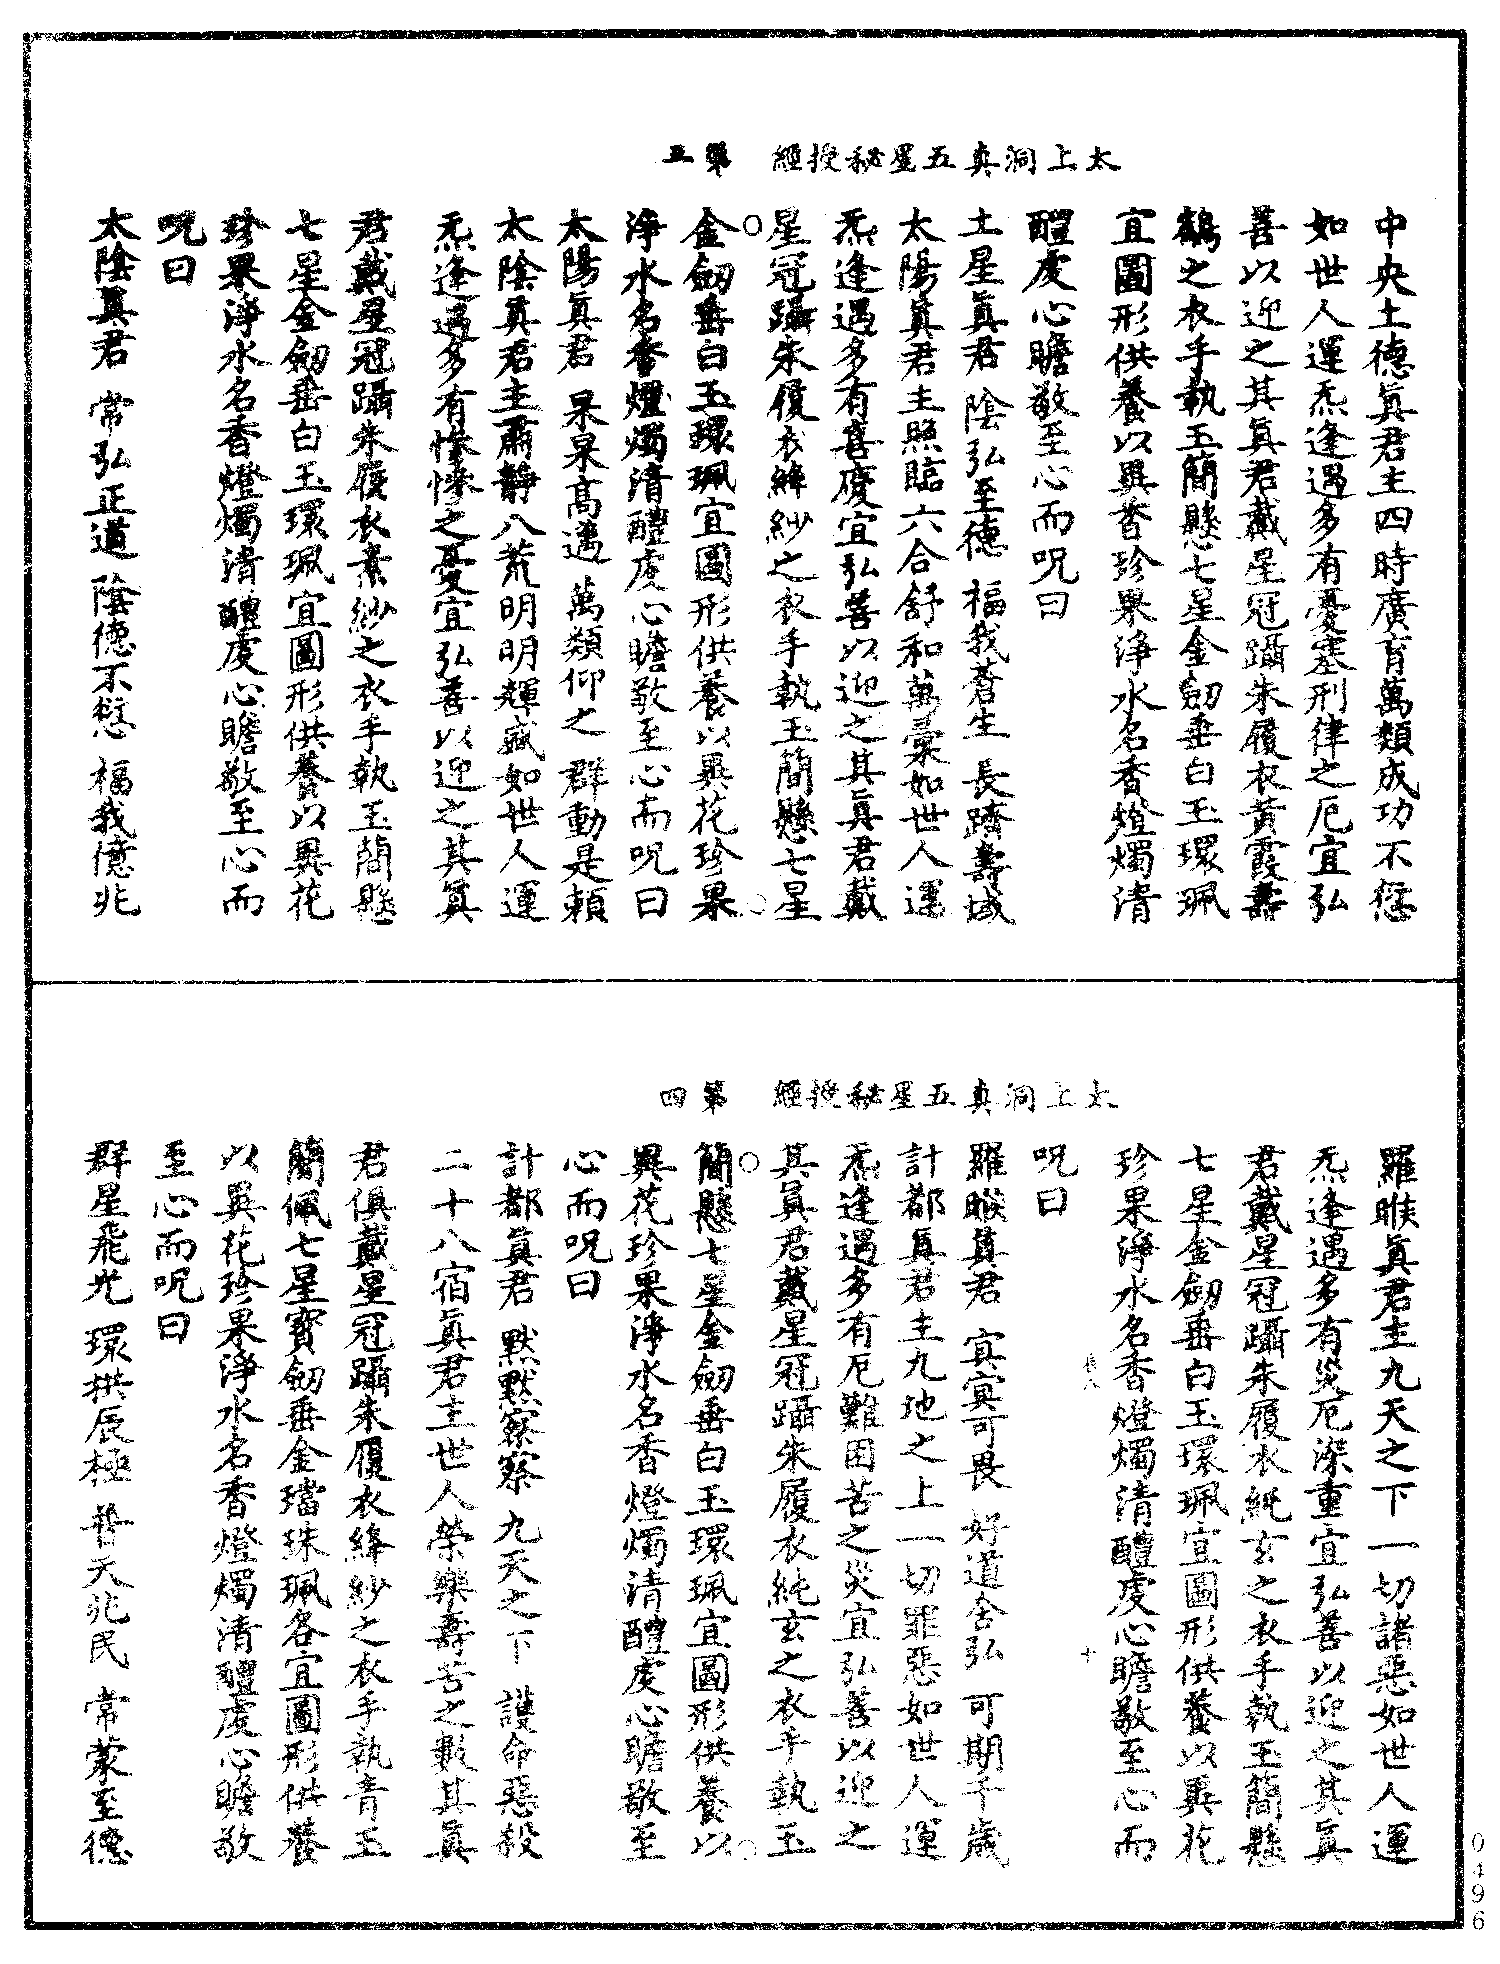 太上洞真五星秘授經　第三
中央土德眞君主四時廣育萬類成功不愆
如世人運炁逢遇多有憂塞刑律之厄宜弘
善以迎之其眞君戴星冠躡朱履衣黄霞壽
鶴之衣手執玉簡懸七星金劒垂白玉環珮
宜圖形供養以異香珍果淨水名香燈燭清
醴虔心瞻敬至心而呪曰
土星眞君　陰弘至德　福我蒼生　長躋壽域
太陽眞君主照臨六合舒和萬彙如世人運
炁逢遇多有喜慶宜弘善以迎之其眞君戴
星冠躡朱履衣絳紗之衣手執玉簡懸七星
金劒垂白玉環珮宜圖形供養以異花珍果
淨水名香燈燭清醴虔心瞻敬至心而呪曰
太陽眞君　杲杲高邁　萬類仰之　群動是賴
太陰眞君主肅靜八荒明明輝盛如世人運
炁逢遇多有慘慘之憂宜弘善以迎之其眞
君戴星冠躡朱履衣素紗之衣手執玉簡懸
七星金劒垂白玉環珮宜圖形供養以異花
珍果淨水名香燈燭清醴虔心瞻敬至心而
呪曰
太陰眞君　常弘正道　陰德不愆　福我億兆
太上洞真五星秘授經　第四
羅睺眞君主九天之下一切諸惡如世人運
炁逢遇多有災厄深重宜弘善以迎之其眞
君戴星冠躡朱履衣純玄之衣手執玉簡懸
七星金劒垂白玉環珮宜圖形供養以異花
珍果淨水名香燈燭清醴虔心瞻敬至心而
呪曰
羅睺眞君　寘寘可畏　好道舍弘　可期千歲
計都眞君主九地之上一切罪惡如世人運
炁逢遇多有厄難困苦之災宜弘善以迎之
其眞君戴星冠躡朱履衣純玄之衣手執玉
簡懸七星金劒垂白玉環珮宜圖形供養以
異花珍果淨水名香燈燭清醴虔心瞻敬至
心而呪曰
計都眞君　默默察察　九天之下　護命惡殺
二十八宿眞君主世人榮樂壽苦之數其眞
君俱戴星冠躡朱履衣絳紗之衣手執青玉
簡佩七星寶劒垂金璫珠珮各宜圖形供養
以異花珍果淨水名香燈燭清醴虔心瞻敬
至心而呪曰
群星飛光　環拱辰極　普天兆民　常蒙至德
0496